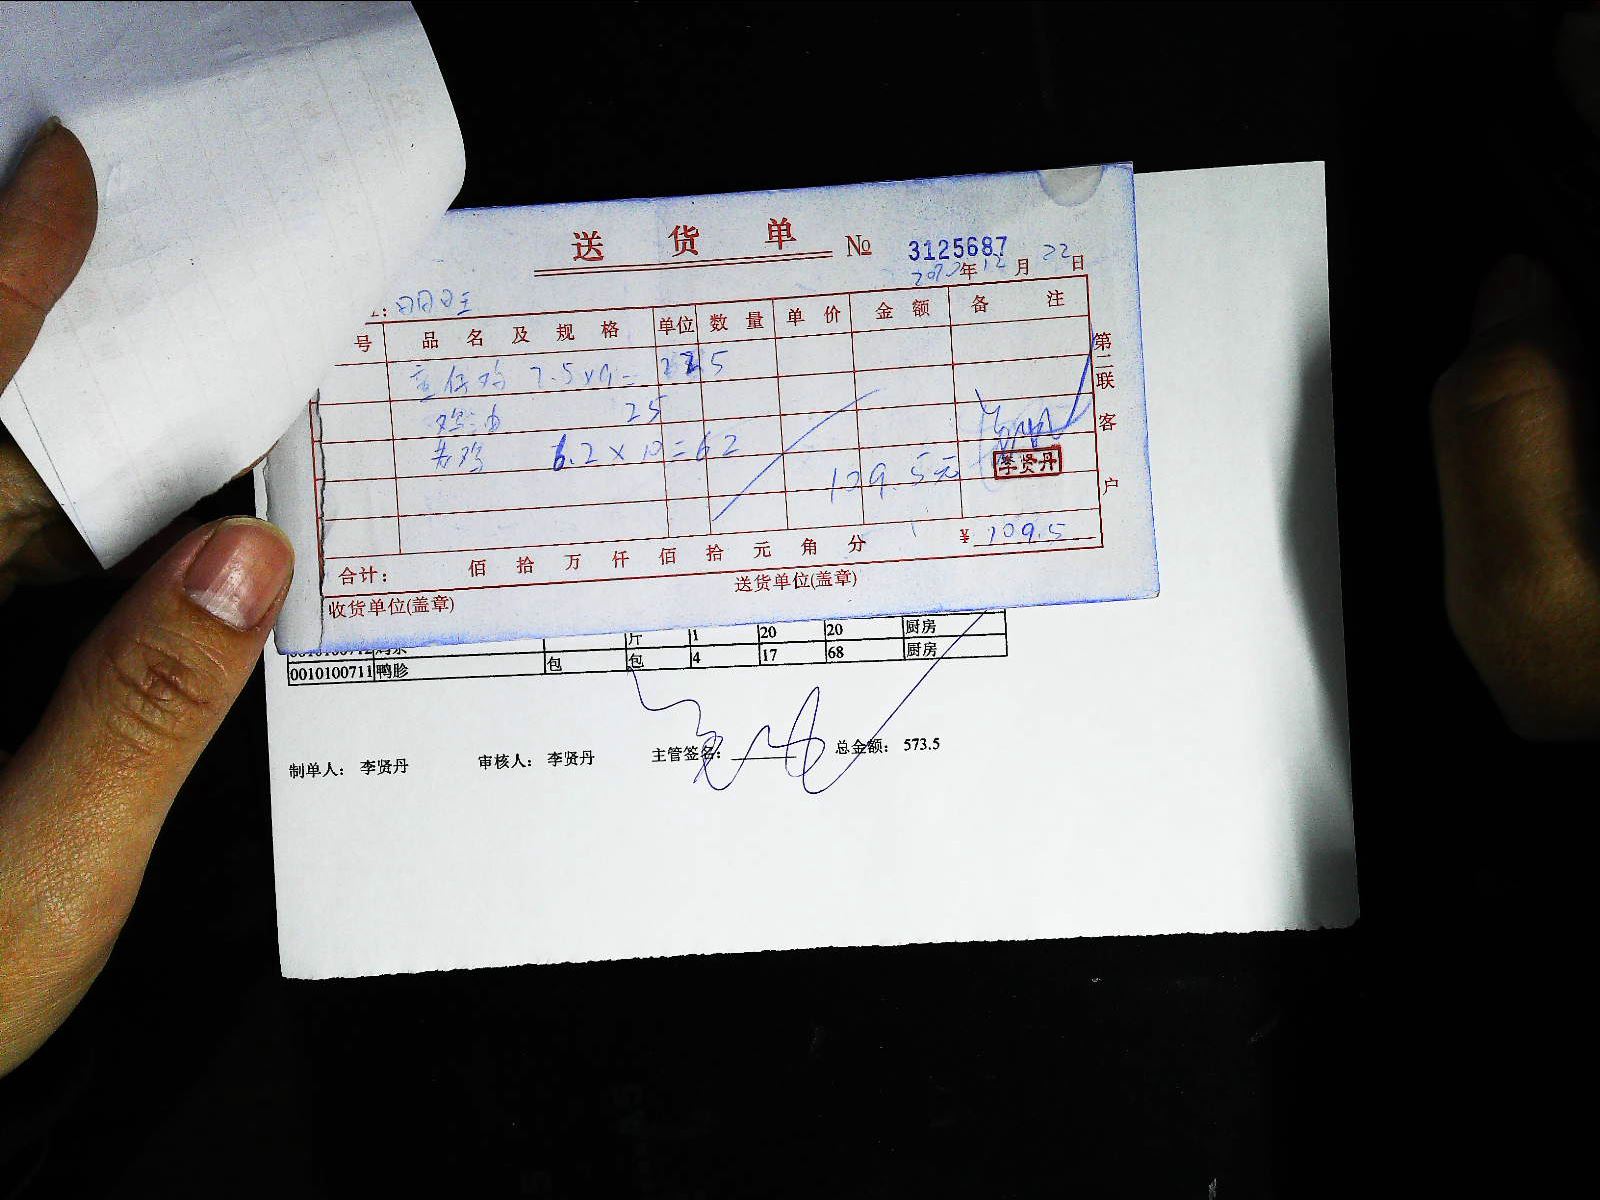 送 货 单 № 3125687
年 12 月 22 日
号 品 名 及 规 格 单位 数 量 单 价 金 额 备 注
鸡油 25
6.2×10=62
109.5元
李贤丹
合计： 佰 拾 万 仟 佰 拾 元 角 分 ¥ 109.5
收货单位(盖章) 送货单位(盖章)
第二联 客 户
斤 1 20 20 厨房
0010100711 鸭胗 包 包 4 17 68 厨房
制单人： 李贤丹 审核人： 李贤丹 主管签名： 总金额： 573.5